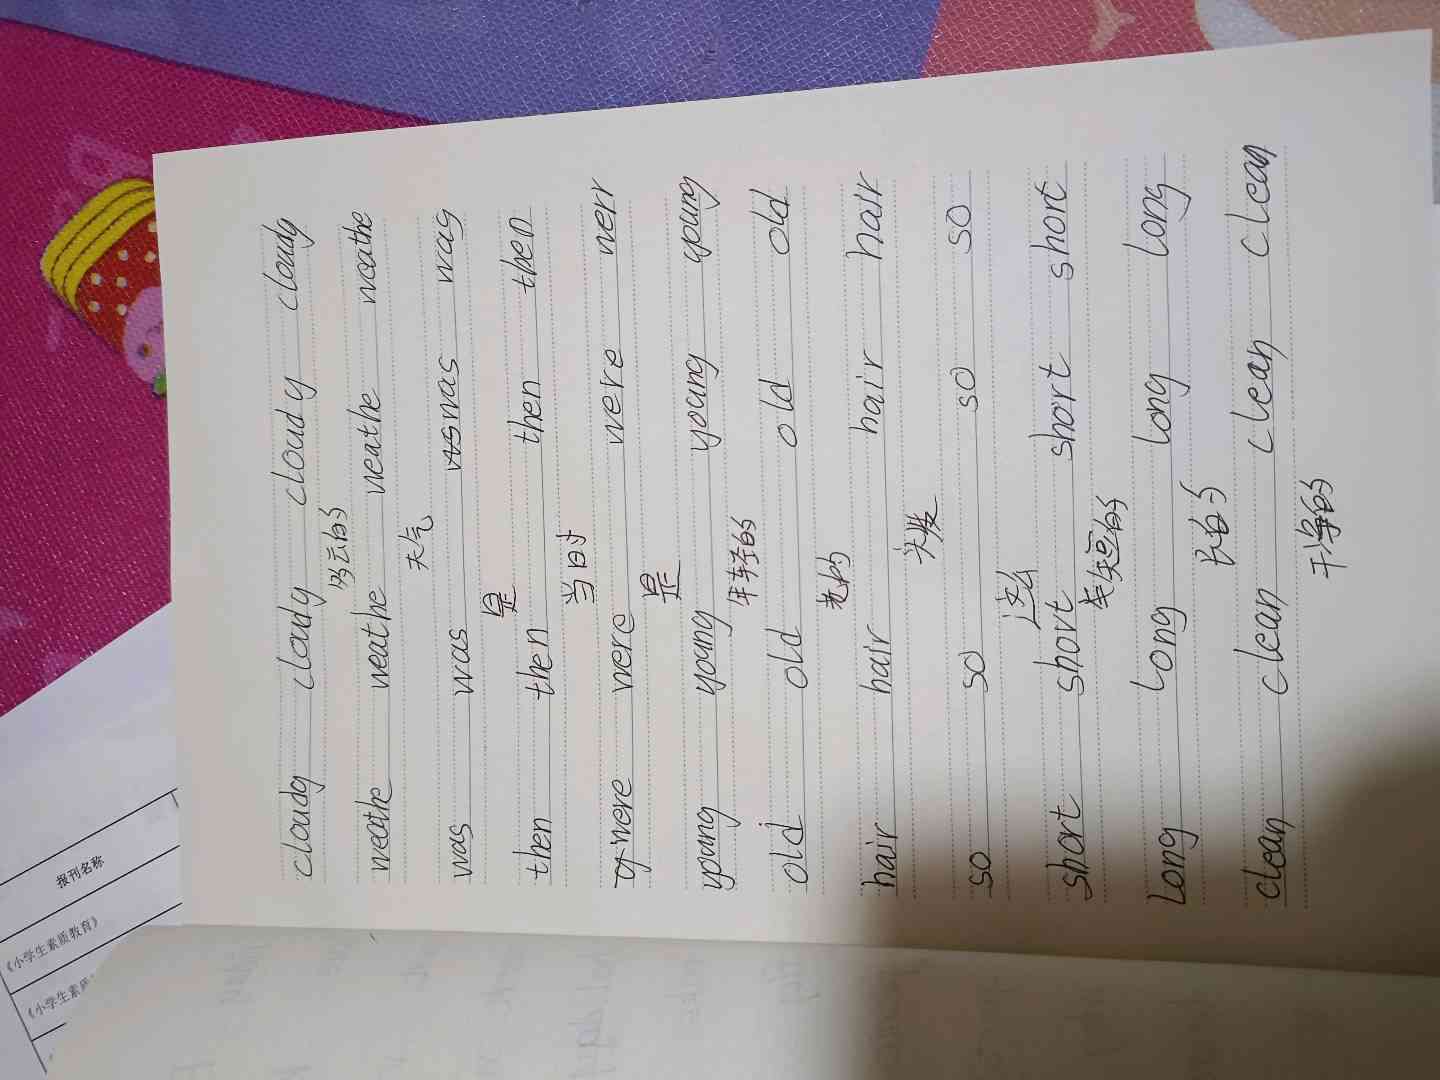 cloudy cloudy cloudy cloudy
多云的
weathe weathe weathe weathe
天气
was was was was
是
then then then then
当时
were were were werr
是
young young young young
年轻的
old old old old
老的
hair hair hair hair
头发
so so so so
这么
short short short short
短的
long long long long
长的
clean clean clean clean
干净的
报刊名称
《小学生素质教育》
《小学生素质